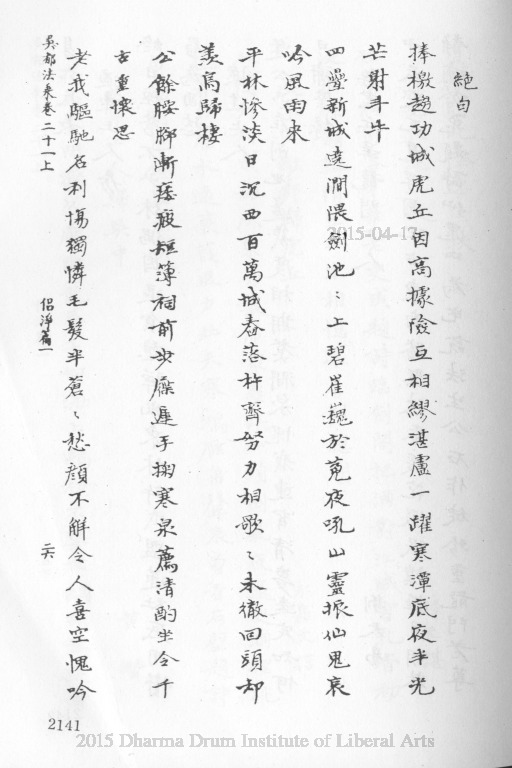 絕句
捧檄趨功城虎丘因高據險互相繆湛盧一躍寒潭底夜半光
芒射斗牛
四疊新城遶澗隈劍池〻上碧崔巍於菟夜吼山靈振仙鬼哀
吟風雨來
平林慘淡日沉西百萬城舂落杵齊努力相歌〻未徹回頭却
羨鳥歸棲
公餘胺腳漸痿疲短簿祠前步屧遲手掬寒泉薦清酌坐令千
古重懷思
老我驅馳名利場獨憐毛髮半蒼〻愁顏不解令人喜空愧吟
吳都法乘卷二十一上
侶淨篇一
二六
2141
2015-04-17
2015 Dharma Drum Institute of Liberal Arts